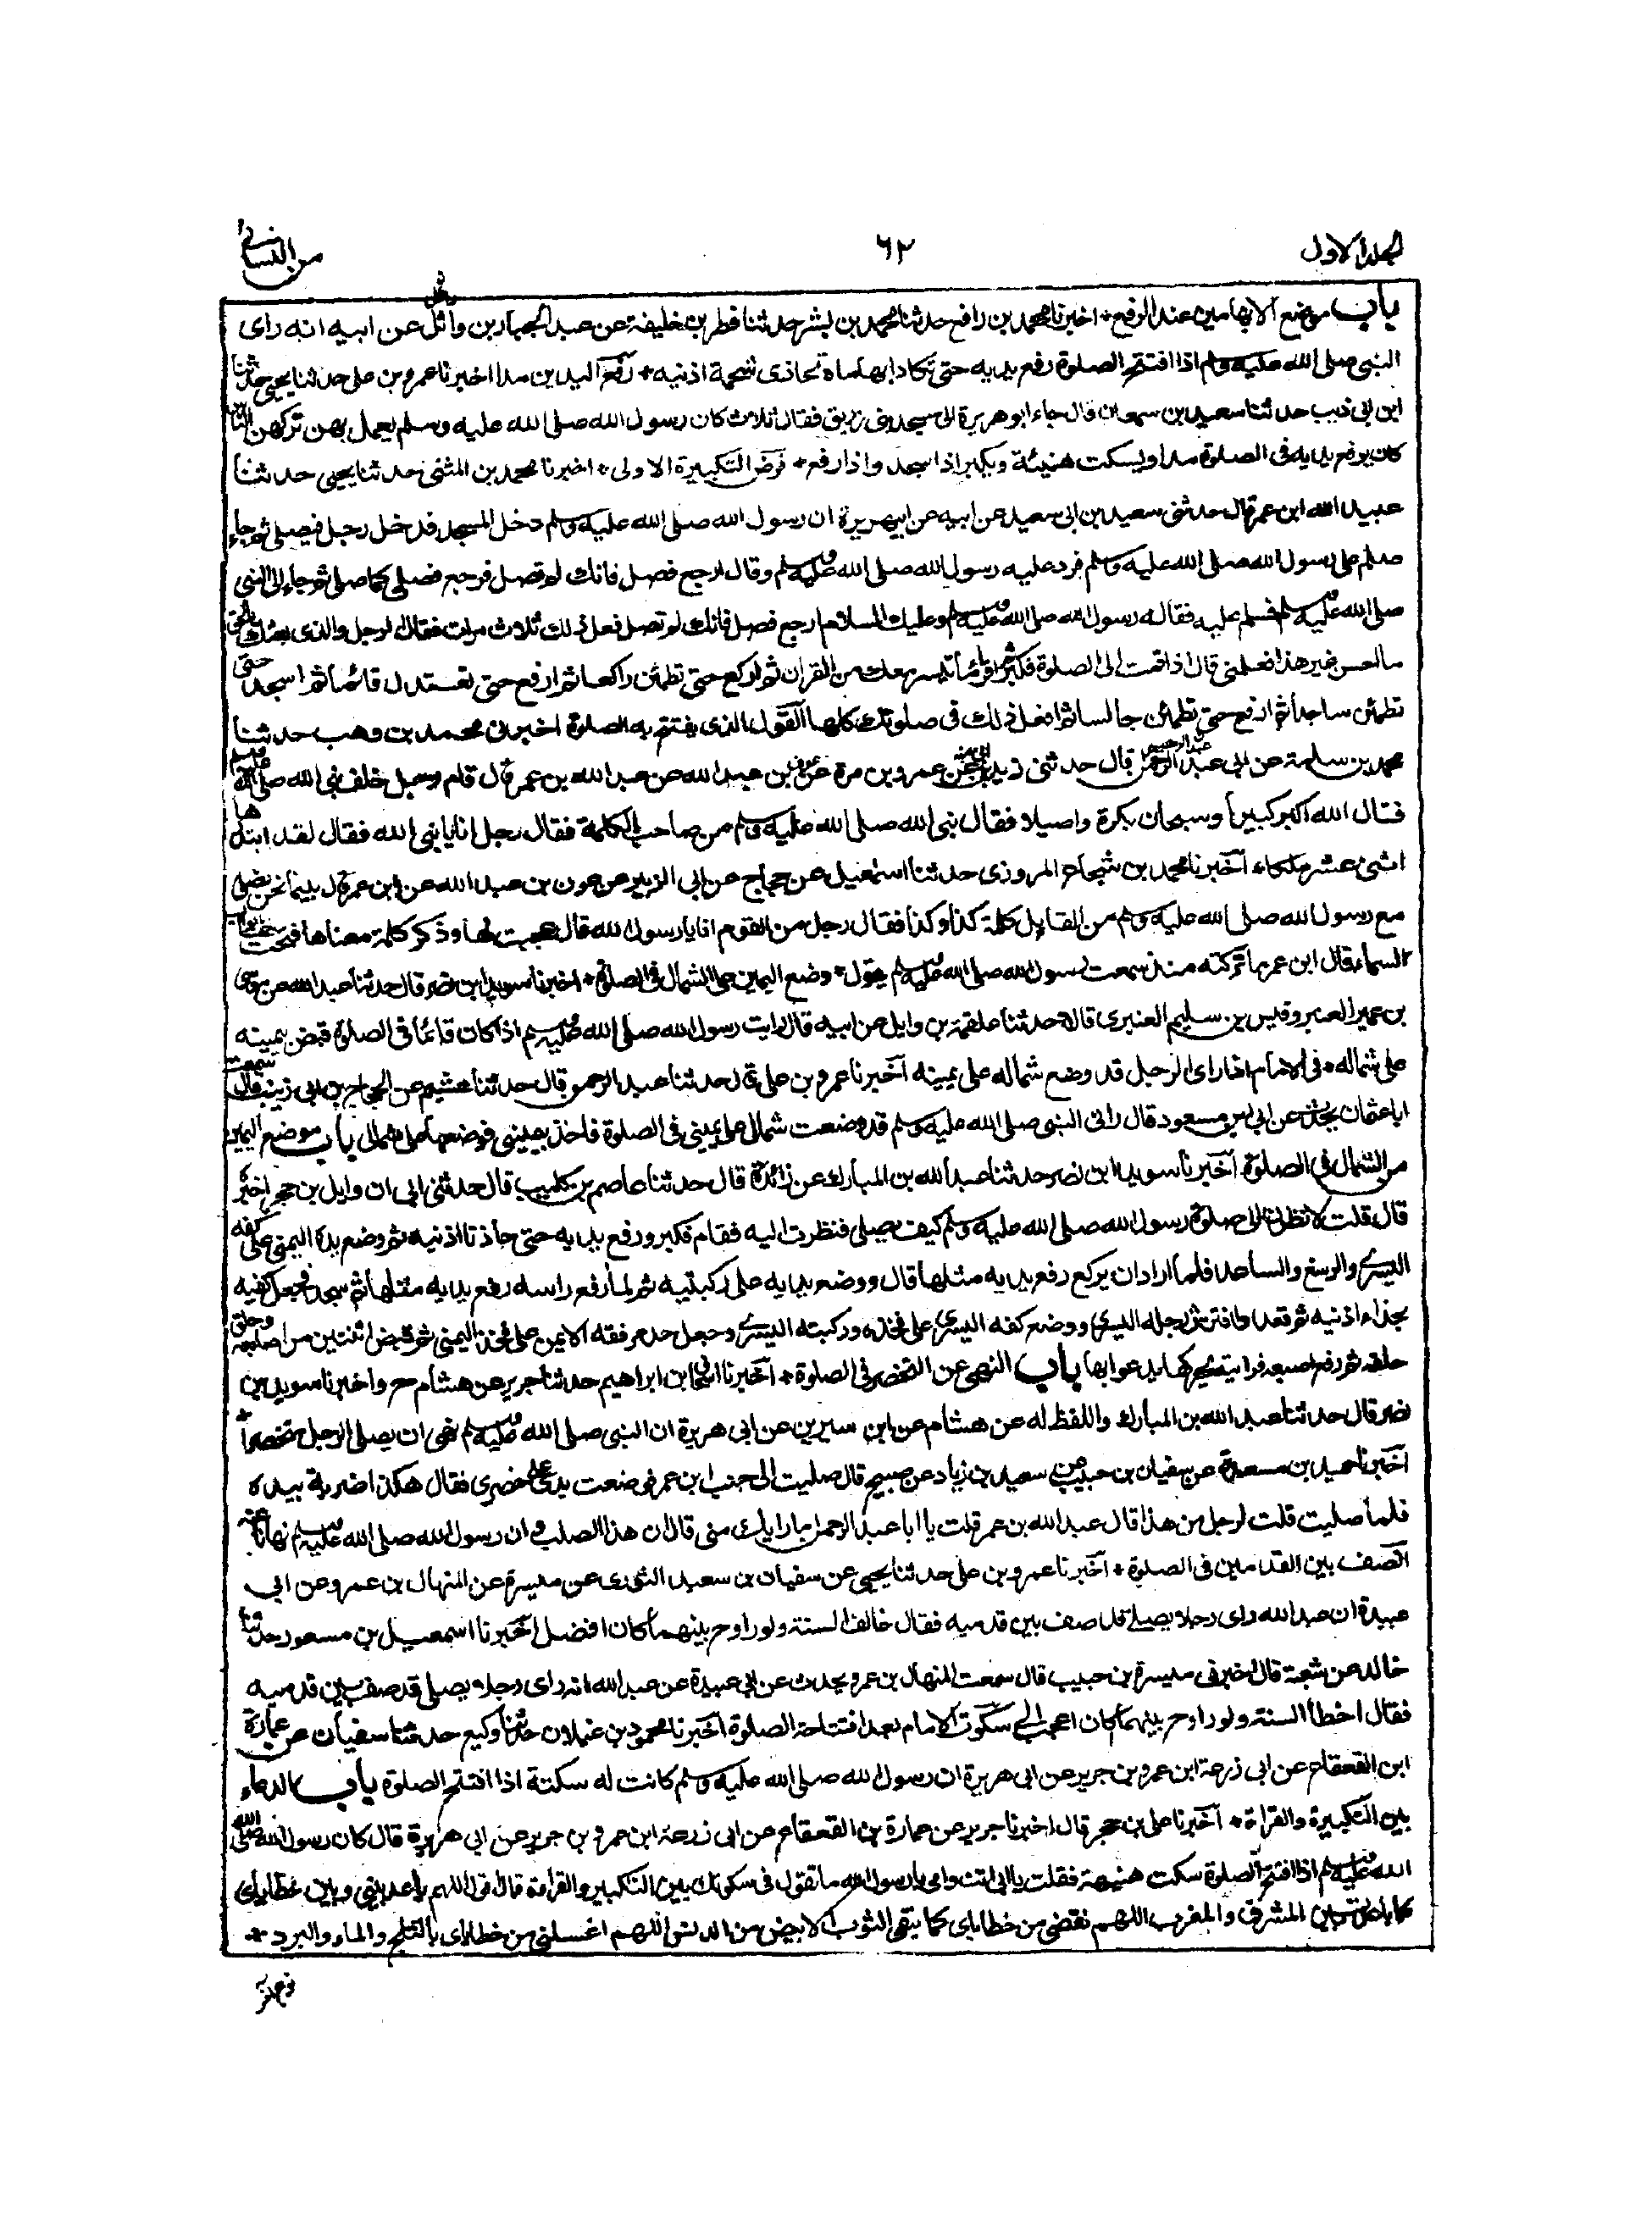 الجلد الاول
٦٢
من النسائي
باب موضع الابهامين عند الرفع * اخبرنا محمد بن رافع حدثنا محمد بن بشر حدثنا فطر بن خليفة عن عبد الجبار بن وائل عن ابيه انه راى
النبي صلى الله عليه وسلم اذا افتتح الصلوة رفع يديه حتى تكاد ابهاماه تحاذى شحمة اذنيه * رفع اليدين مدا اخبرنا عمرو بن على حدثنا يحيى حدثنا
ابن ابى ذيب حدثنا سعيد بن سمعان قال جاء ابو هريرة الى مسجد بنى زريق فقال ثلاث كان رسول الله صلى الله عليه وسلم يعمل بهن تركهن الناس
كان يرفع يديه فى الصلوة مدا ويسكت هنيئة ويكبر اذا سجد واذا رفع * فرض التكبيرة الاولى * اخبرنا محمد بن المثنى حدثنا يحيى حدثنا
عبيد الله ابن عمر قال حدثنى سعيد بن ابى سعيد عن ابيه عن ابيهريرة ان رسول الله صلى الله عليه وسلم دخل المسجد فدخل رجل فيصلى ثم جاء
فسلم على رسول الله صلى الله عليه وسلم فرد عليه رسول الله صلى الله عليه وسلم وقال ارجع فصل فانك لم تصل فرجع فصلى كما صلى ثم جاء الى النبى
صلى الله عليه وسلم فسلم عليه فقال له رسول الله صلى الله عليه وسلم وعليك السلام ارجع فصل فانك لم تصل فعل ذلك ثلاث مرات فقال الرجل والذى بعثك بالحق
ما احسن غير هذا فعلمنى قال اذا قمت الى الصلوة فكبر ثم اقرأ ما تيسر معك من القران ثم اركع حتى تطمئن راكعا ثم ارفع حتى تعتدل قائما ثم اسجد حتى
تطمئن ساجدا ثم ارفع حتى تطمئن جالسا ثم افعل ذلك فى صلوتك كلها القول الذى يفتتح به الصلوة اخبرنى محمد بن وهب حدثنا
محمد بن سلمة عن ابى عبد الرحيم قال حدثنى زيد عن عمرو بن مرة عن عون بن عبد الله عن عبد الله بن عمر قال قام رجل خلف نبى الله صلى الله عليه وسلم
فقال الله اكبر كبيرا وسبحان بكرة واصيلا فقال نبى الله صلى الله عليه وسلم من صاحب الكلمة فقال رجل انا يا نبى الله فقال لقد ابتدرها
اثنى عشر ملكا * اخبرنا محمد بن شجاع المروزى حدثنا اسمعيل عن حجاج عن ابى الزبير عن عون بن عبد الله عن ابن عمر قال بينما نحن نصلى
مع رسول الله صلى الله عليه وسلم من القايل كلمة كذا وكذا فقال رجل من القوم انا يا رسول الله قال عجبت لها وذكر كلمة معناها فتحت لها ابواب
السماء قال ابن عمر ما تركته منذ سمعت رسول الله صلى الله عليه وسلم يقول * وضع اليمين على الشمال فى الصلوة * اخبرنا سويد ابن نصر قال حدثنا عبد الله عن موسى
بن عمير العنبرى وقيس بن سليم العنبرى قالا حدثنا علقمة بن وايل عن ابيه قال رايت رسول الله صلى الله عليه وسلم اذا كان قائما فى الصلوة قبض بيمينه
على شماله * فى الامام اذا راى الرجل قد وضع شماله على يمينه اخبرنا عمرو بن على قال حدثنا عبد الرحمن قال حدثنا هشيم عن الحجاج بن ابى زينب قال سمعت
ابا عثمان يحدث عن ابن مسعود قال رانى النبى صلى الله عليه وسلم قد وضعت شمالى على يمينى فى الصلوة فاخذ بيمينى فوضعها على شمالى باب موضع اليمين
من الشمال فى الصلوة اخبرنا سويد ابن نصر حدثنا عبد الله بن المبارك عن زائدة قال حدثنا عاصم بن كليب قال حدثنى ابى ان وايل بن حجر اخبره
قال قلت لانظرن الى صلوة رسول الله صلى الله عليه وسلم كيف يصلى فنظرت اليه فقام فكبر ورفع يديه حتى حاذتا اذنيه ثم وضع يده اليمنى على كفه
اليسرى والرسغ والساعد فلما اراد ان يركع رفع يديه مثلها قال ووضع يديه على ركبتيه ثم لما رفع راسه رفع يديه مثلها ثم سجد فجعل كفيه
بحذاء اذنيه ثم قعد وافترش رجله اليسرى ووضع كفه اليسرى على فخذه وركبته اليسرى وجعل حد مرفقه الايمن على فخذه اليمنى ثم قبض اثنتين من اصابعه وحلق
حلقة ثم رفع اصبعه فرايته يحركها يدعوا بها باب النهى عن التخصر فى الصلوة * اخبرنا اسحق ابن ابراهيم حدثنا جرير عن هشام ح واخبرنا سويد بن
نصر قال حدثنا عبد الله بن المبارك واللفظ له عن هشام عن ابن سيرين عن ابى هريرة ان النبى صلى الله عليه وسلم نهى ان يصلى الرجل مختصرا *
اخبرنا حميد بن مسعدة عن سفيان بن حبيب عن سعيد بن زياد عن صبيح قال صليت الى جنب ابن عمر فوضعت يدى على خصرى فقال هكذا ضربة بيده
فلما صليت قلت لرجل من هذا قال عبد الله بن عمر قلت يا ابا عبد الرحمن ما رابك منى قال ان هذا الصلب وان رسول الله صلى الله عليه وسلم نهانا عنه
الصف بين القدمين فى الصلوة * اخبرنا عمرو بن على حدثنا يحيى عن سفيان بن سعيد الثورى عن ميسرة عن المنهال بن عمرو عن ابى
عبيدة ان عبد الله راى رجلا يصلى قد صف بين قدميه فقال خالف السنة ولو راوح بينهما كان افضل اخبرنا اسمعيل بن مسعود حدثنا
خالد عن شعبة قال اخبرنى ميسرة بن حبيب قال سمعت المنهال بن عمرو يحدث عن ابى عبيدة عن عبد الله انه راى رجلا يصلى قد صف بين قدميه
فقال اخطا السنة ولو راوح بينهما كان اعجب الى سكوت الامام بعد افتتاحة الصلوة اخبرنا محمود بن غيلان حدثنا وكيع حدثنا سفيان عن عمارة
ابن القعقاع عن ابى زرعة ابن عمرو بن جرير عن ابى هريرة ان رسول الله صلى الله عليه وسلم كانت له سكتة اذا افتتح الصلوة باب الدعاء
بين التكبيرة والقراة * اخبرنا على بن حجر قال اخبرنا جرير عن عمارة بن القعقاع عن ابى زرعة ابن عمرو بن جرير عن ابى هريرة قال كان رسول الله صلى الله
الله عليه وسلم اذا افتتح الصلوة سكت هنيهة فقلت بابى انت وامى يا رسول الله ما تقول فى سكوتك بين التكبير والقراءة قال اقول اللهم باعد بينى وبين خطاياى
كما باعدت بين المشرق والمغرب اللهم نقنى من خطاياى كما ينقى الثوب الابيض من الدنس اللهم اغسلنى من خطاياى بالثلج والماء والبرد *